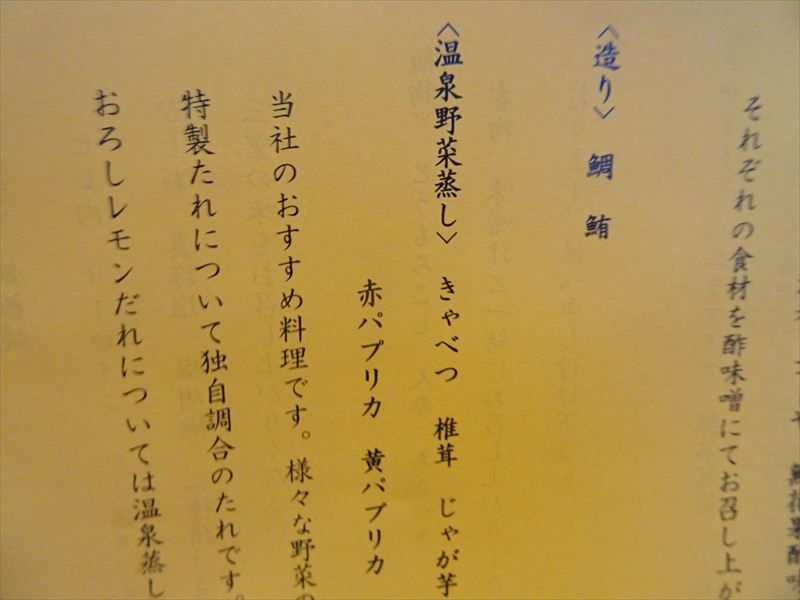 それぞれの食材を酢味噌にてお召し上が
〈造り〉 鯛 鮪
〈温泉野菜蒸し〉 きゃべつ 椎茸 じゃが芋
赤パプリカ 黄パプリカ
当社のおすすめ料理です。様々な野菜の
特製たれについて独自調合のたれです。
おろしレモンだれについては温泉蒸し